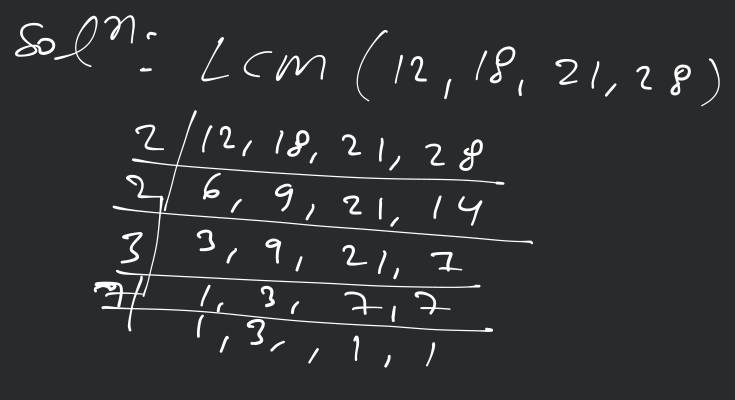 Solⁿ: LCM (12, 18, 21, 28)
2 12, 18, 21, 28
2 6, 9, 21, 14
3 3, 9, 21, 7
7 1, 3, 7, 7
1, 3, , 1, 1